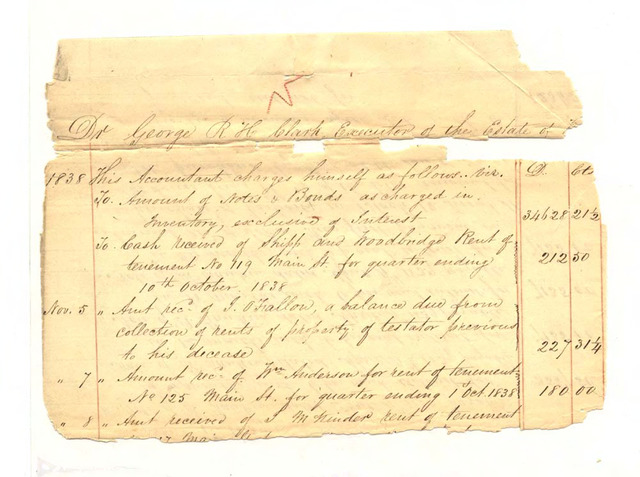 Dr George R H Clark, Executor of the Estate of
1838 This Accountant charges himself as follows. Viz. D. Cts
To. Amount of Notes & Bonds as charged in
Inventory, exclusive of Interest 34628 21½
To Cash received of Shipp and Woodbridge Rent of
tenement No 119 Main St. for quarter ending 212 50
10th October. 1838
Nov. 5 " Amt recd. of J. O'Fallon, a balance due from
collection of rents of property of testator previous
to his decease 227 31¼
" 7 " Amount recd. of Wm Anderson for rent of tenement
No 125 Main St. for quarter ending 1st Oct. 1838 180 00
" 8 " Amt received of M Kinder rent of tenement
Main